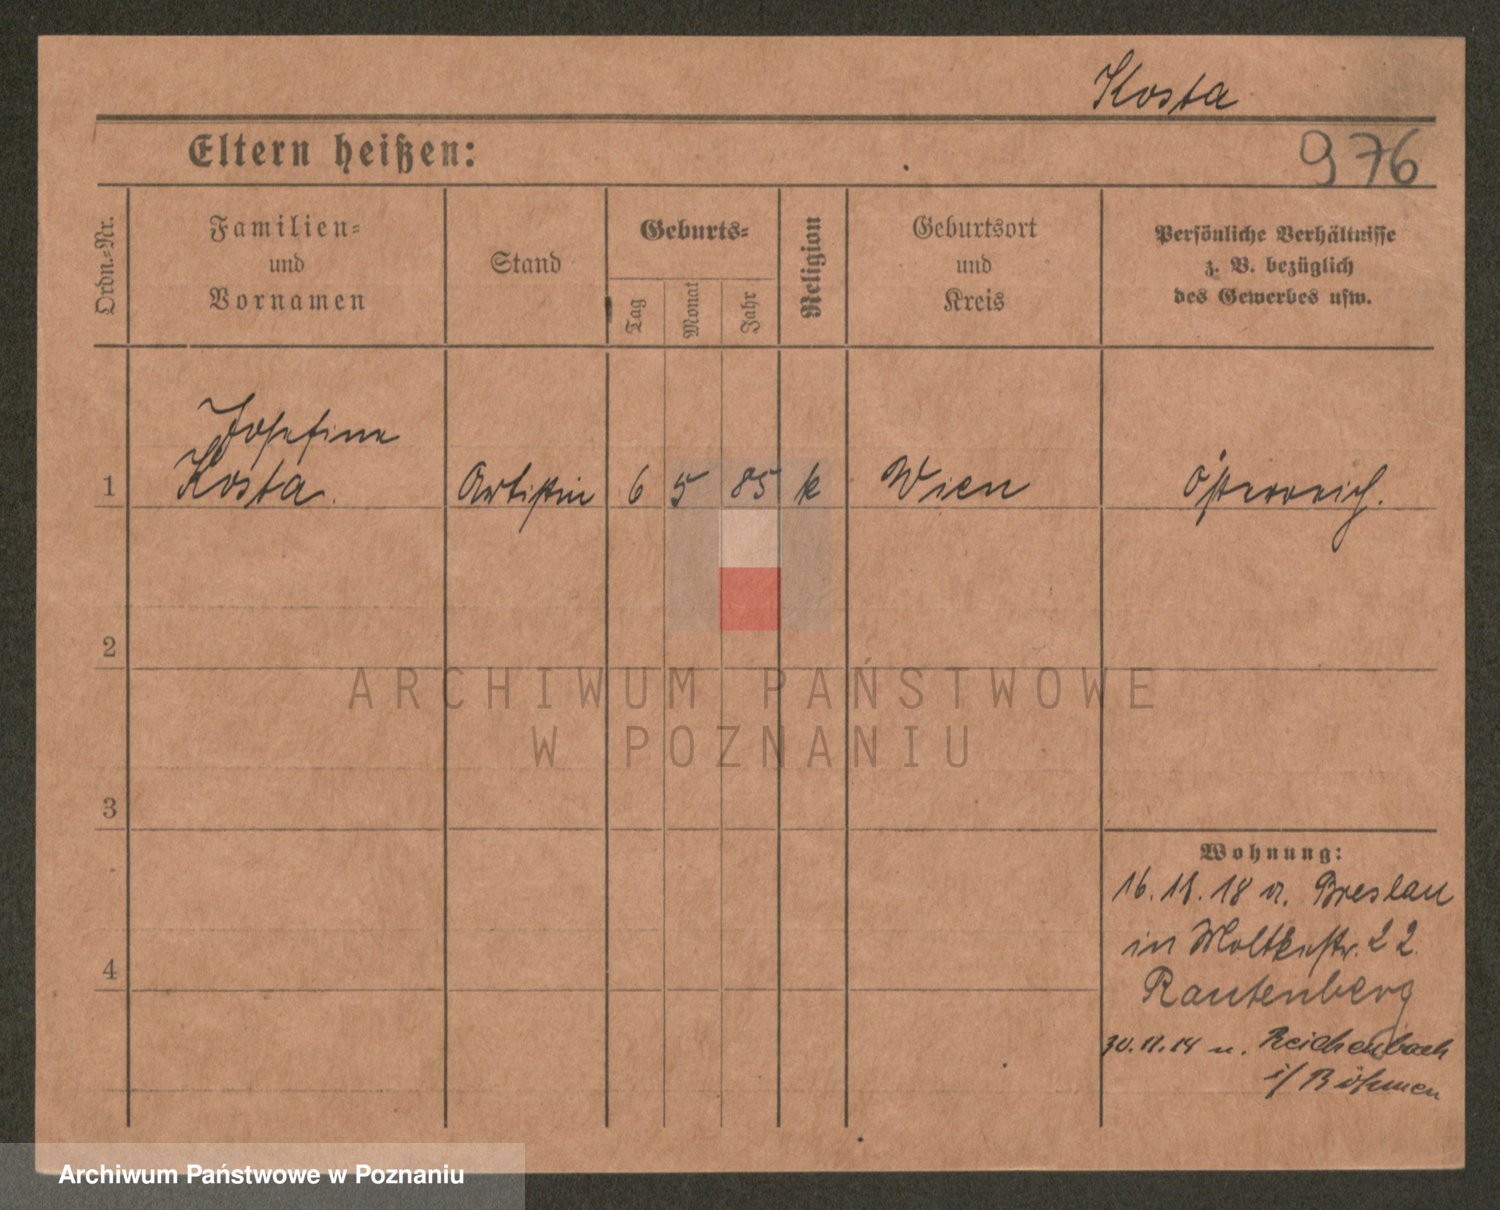 Kosta
Eltern heißen:
976
Ordn.-Nr.
Familien-
und
Vornamen
Stand
Geburts-
Tag
Monat
Jahr
Religion
Geburtsort
und
Kreis
Persönliche Verhältnisse
z. B. bezüglich
des Gewerbes usw.
Josefine
1 Kosta. Artistin 6 5 85 k Wien Österreich.
2
ARCHIWUM PAŃSTWOWE
W POZNANIU
3
Wohnung:
16. 11. 18 a. Breslau
in Moltkestr. 22.
4
Rautenberg
30. 11. 14 n. Reichenbach
i/ Böhmen
Archiwum Państwowe w Poznaniu